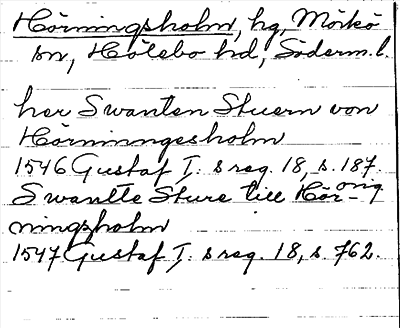 Hörningsholm, hg, Mörkö
sn, Hölebo hd, Söderm. l.
her Swanten Stuern von
Hörninngesholm
1546 Gustaf I. s reg. 18, s. 187.
Swantte Sture till Hör- orig
ningzholm
1547 Gustaf I. s reg. 18, s. 762.